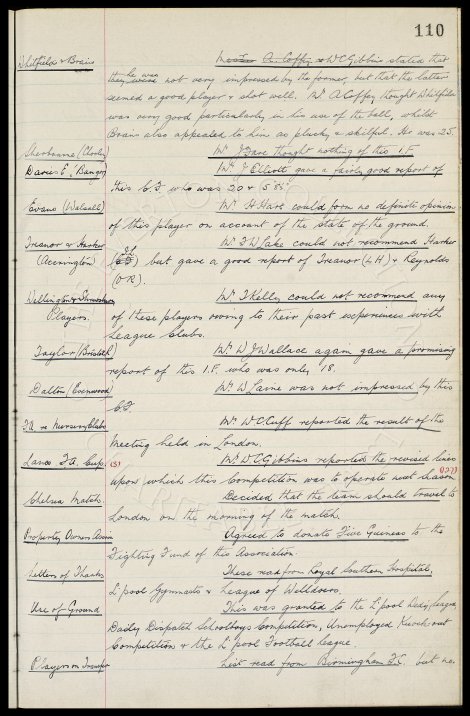 110
Whitfield & Brain
A. Coffey & W C Gibbins stated that
he was not very impressed by the former, but that the latter
seemed a good player & shot well. Mr A Coffey thought Whitfield
was very good particularly in his use of the ball, whilst
Brain also appealed to him as plucky & skilful. He was 25.
Sherbourne (Chorley) Mr J thought nothing of this I.F
Davies E. (Bangor) Mr J Elliott gave a fairly good report of
this C.F. who was 20 & 5'8½"
Evans (Walsall) Mr H Hart could form no definite opinion
of this player on account of the state of the ground.
Treanor & Harker Mr T W Lake could not recommend Harker
(Accrington) but gave a good report of Treanor (L H) & Reynolds
(O R).
Wellington & Shrewsbury Mr T Kelly could not recommend any
Players. of these players owing to their past experiences with
League Clubs.
Taylor (Bristol R) Mr W J Wallace again gave a promising
report of this I.F. who was only 18.
Dalton (Evenwood) Mr W Laine was not impressed by this
C.F.
F.A. re Nursery Clubs Mr W C Cuff reported the result of the
Meeting held in London.
Lancs F.A. Cup. (3) Mr W C Gibbins reported the revised lines
upon which this Competition was to operate next season (127)
Chelsea Match. Decided that the team should travel to
London on the morning of the match.
Property Owners Assn Agreed to donate Five Guineas to the
Fighting Fund of this Association.
Letters of Thanks These read from Royal Southern Hospital,
L'pool Gymnastic & League of Welldoers.
Use of Ground This was granted to the L'pool Red League,
Daily Dispatch Schoolboys Competition, Unemployed Knock-out
Competition & the L'pool Football League.
Players on Transfer List read from Birmingham F.C. but no.